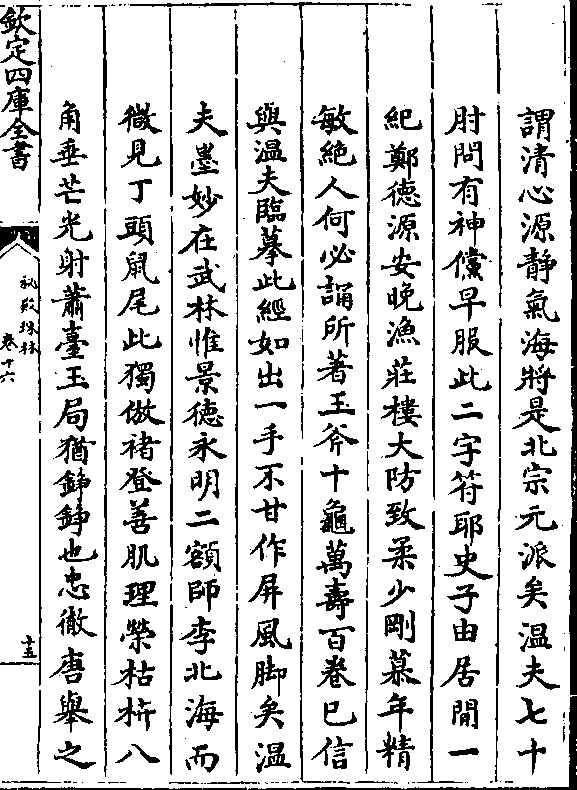 謂清心源静氣海將是北宗元派矣温夫七十
肘問有神儻早服此二字符耶史子由居閒一
紀鄭德源安晚漁莊樓大防致柔少剛慕年精
敏絶人何必誦所著王斧十龜萬壽百卷已信
與温夫臨摹此經如出一手不甘作屏風脚矣温
夫墨妙在武林惟景德永明二額師李北海而
微見丁頭鼠尾此獨倣褚登善肌理榮枯柝八
角垂芒光射蕭臺玉局猶錚錚也忠徹唐舉之
欽定四庫全書
秘殿珠林
卷十六
十五